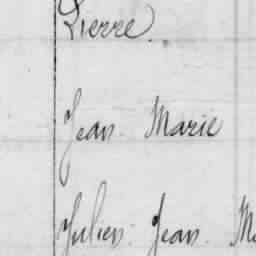 Pierre.
Jean. Marie
Julien. Jean. M